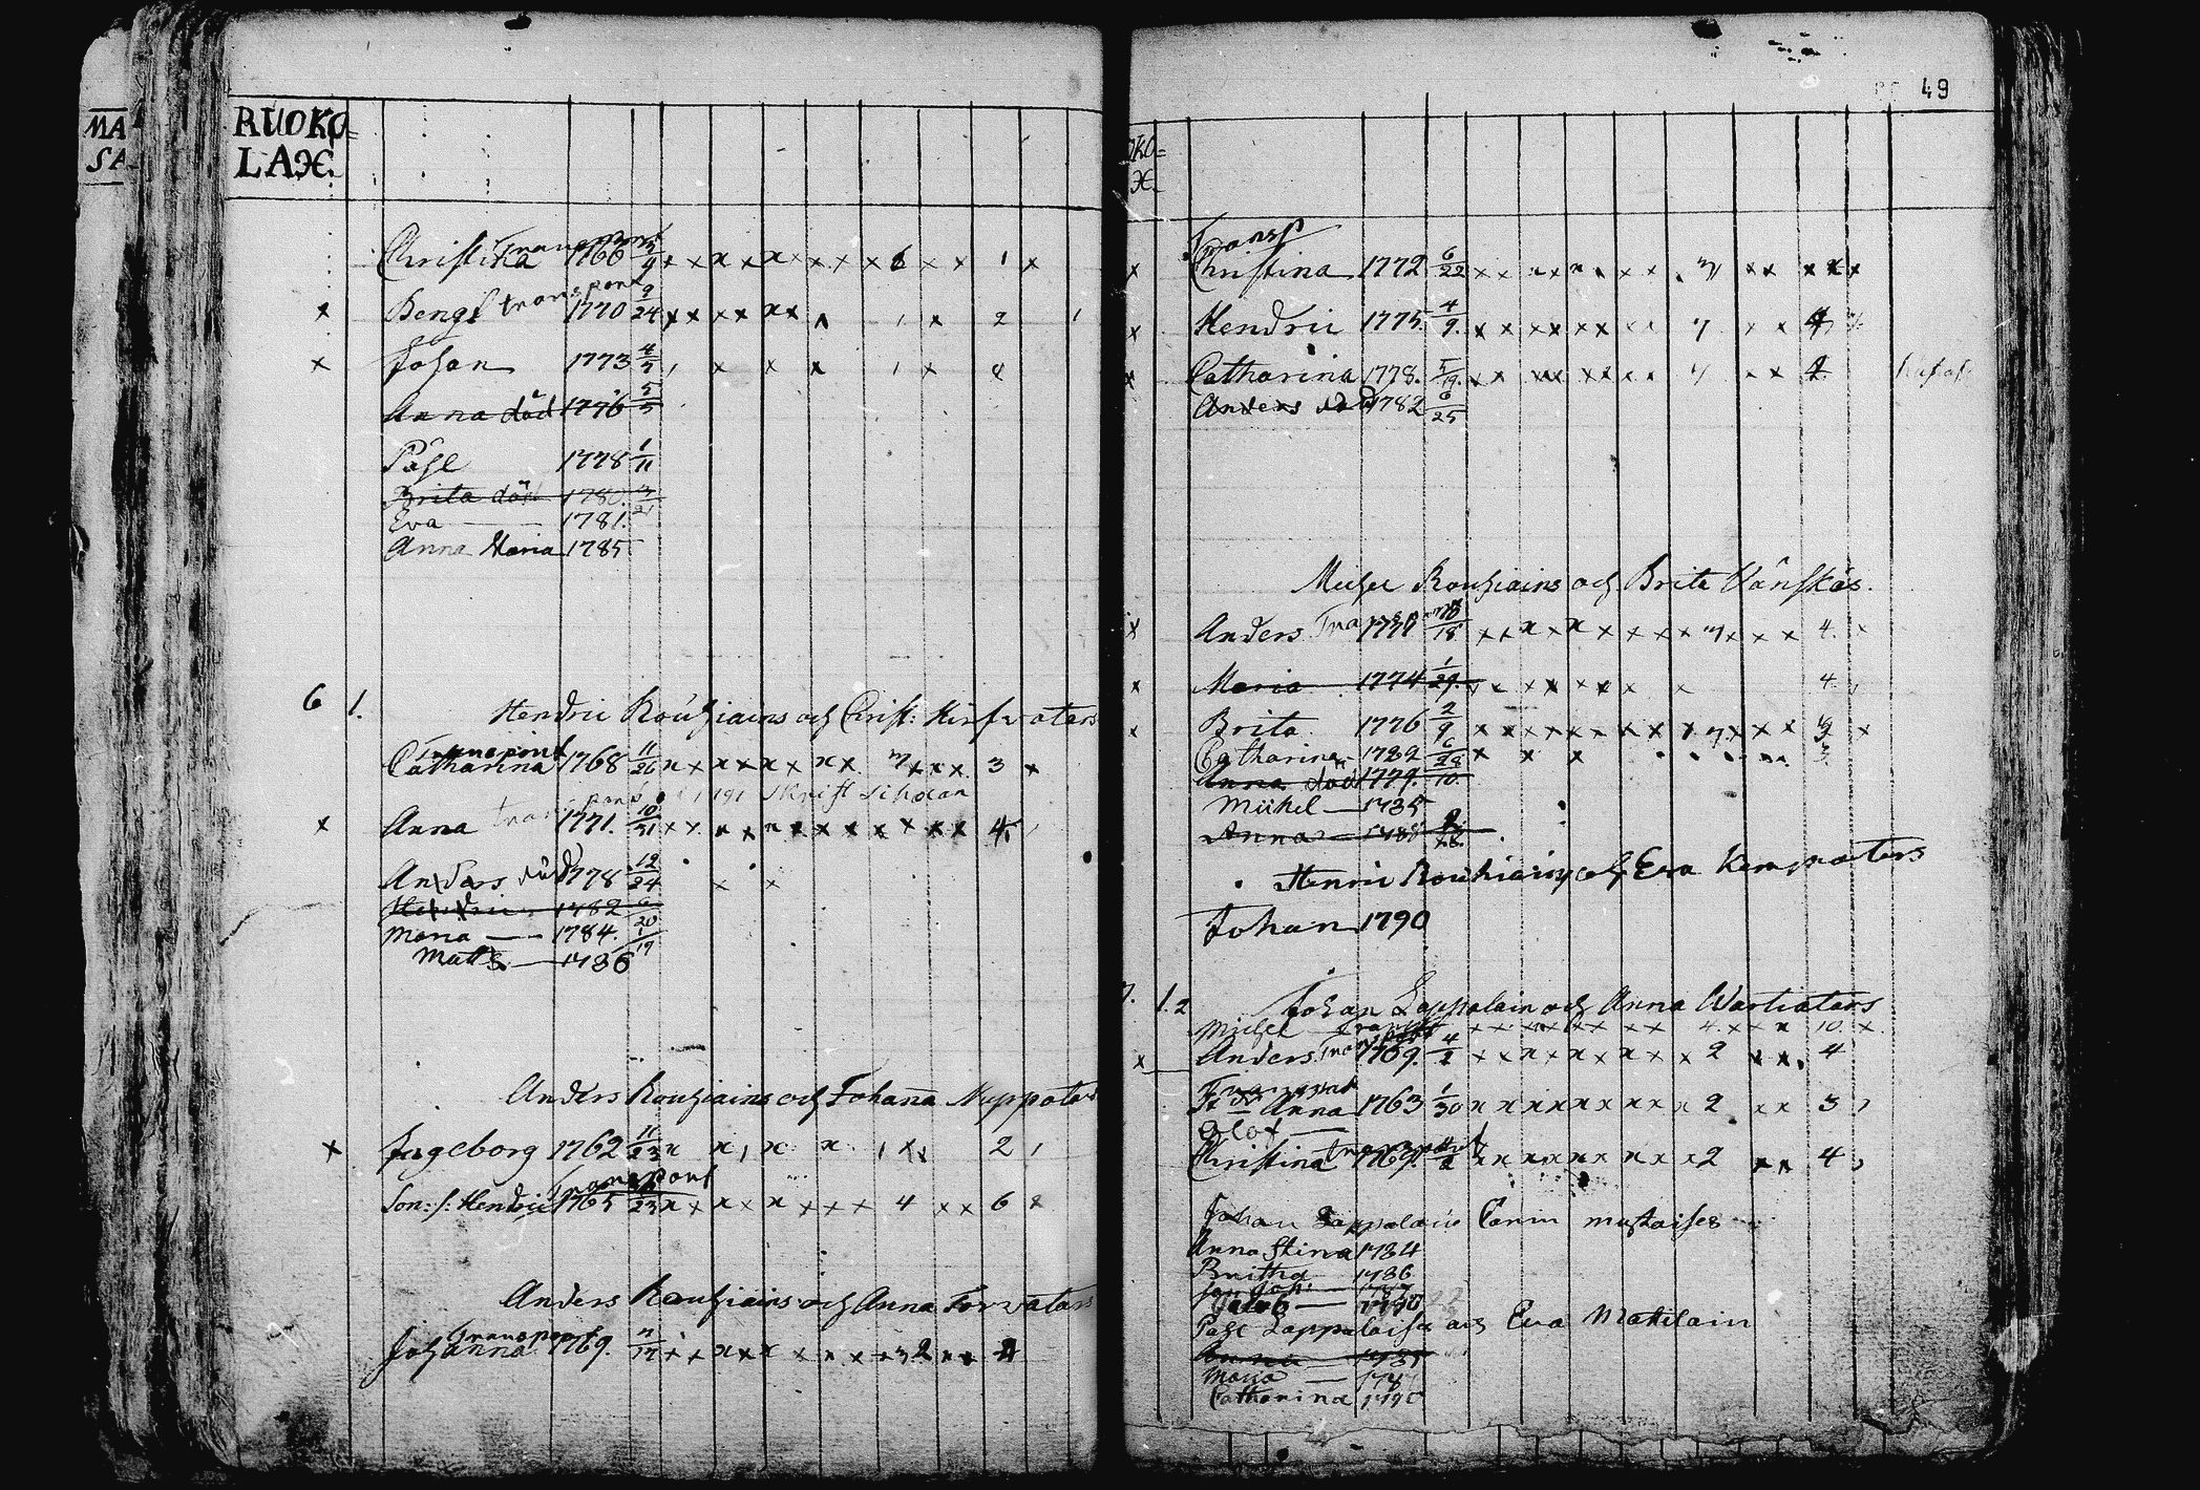 MA
SA
RUOKO=
LAX.
Transport
Christina 1766 3/4 x x x x x x x x x 6 x x 1 x
x Bengt transport 1770 9/24 x x x x x x 1 x 2 1
x Johan 1773 4/5 x x x 1 x
Anna död 1776 5/5
Påhl 1778 1/11
Brita död 1780.
Eva — 1781.
Anna Maria 1785
6 1. Hendric Rouhiains och Christ: Hirfvotars
Transport
Catharina 1768 11/26 x x x x x x x x x x x 3 x
x Anna 1771. 10/31 x x x x x x x x x x x x 4
Anders död 1778 12/24 x x
Hendric 1782 6/20
Maria — 1784. 1/19
Matts — 1786
Anders Rouhiains och Johana Nuppotars
x Ingeborg 1762 11/23 x x x x 2
Transport
Son: /: Hendric 1765 /23 x x x x x x x x 4 x x 6
Anders Rouhiains och Anna Torvatars
Transport
Johanna 1769. 11/12 x x x x x x x x 2 x x 4
49
OKO=
X.
Transp
x Christina 1772 6/22 x x x x x x x x x x x x x
x Hendric 1775. 4/9. x x x x x x x x 7 x x 4
x Catharina 1778. 5/19. x x x x x x x x x x 4
Anders död 1782 6/25
Michel Rouhiains och Brita Vänskäs.
x Anders Transport 1771 /18 x x x x x x x x x 7 x x x 4. x
x Maria 1774 1/29. x x x x x x x x 4.
x Brita 1776 2/9 x x x x x x x x x x 7 x x x x
Catharina 1782 6/28 x x x 3.
Anna död 1779. /10.
Michel — 1785
Anna — 178
Henric Rouhiain och Eva Kemppotars
Johan 1790
7. 1.2 Johan Lappalain och Anna Wartiatars
Michel x x x x x x x x 4. x x x 10. x
x Anders Transport 1769. 4/2 x x x x x x x x x 2 x x. 4
Transport
Anna 1763 1/30 x x x x x x x x x 2 x x 3
Olof —
Christina transport 1769. 4/2 x x x x x x x x x 2 x x 4
Johan Lappalain Carin
Anna Stina 1784
Britha 1786
Jacob — 1790
Påhl Lappalain och Eva Matilain
Anna — 1785
Maria — 178
Catharina 1790